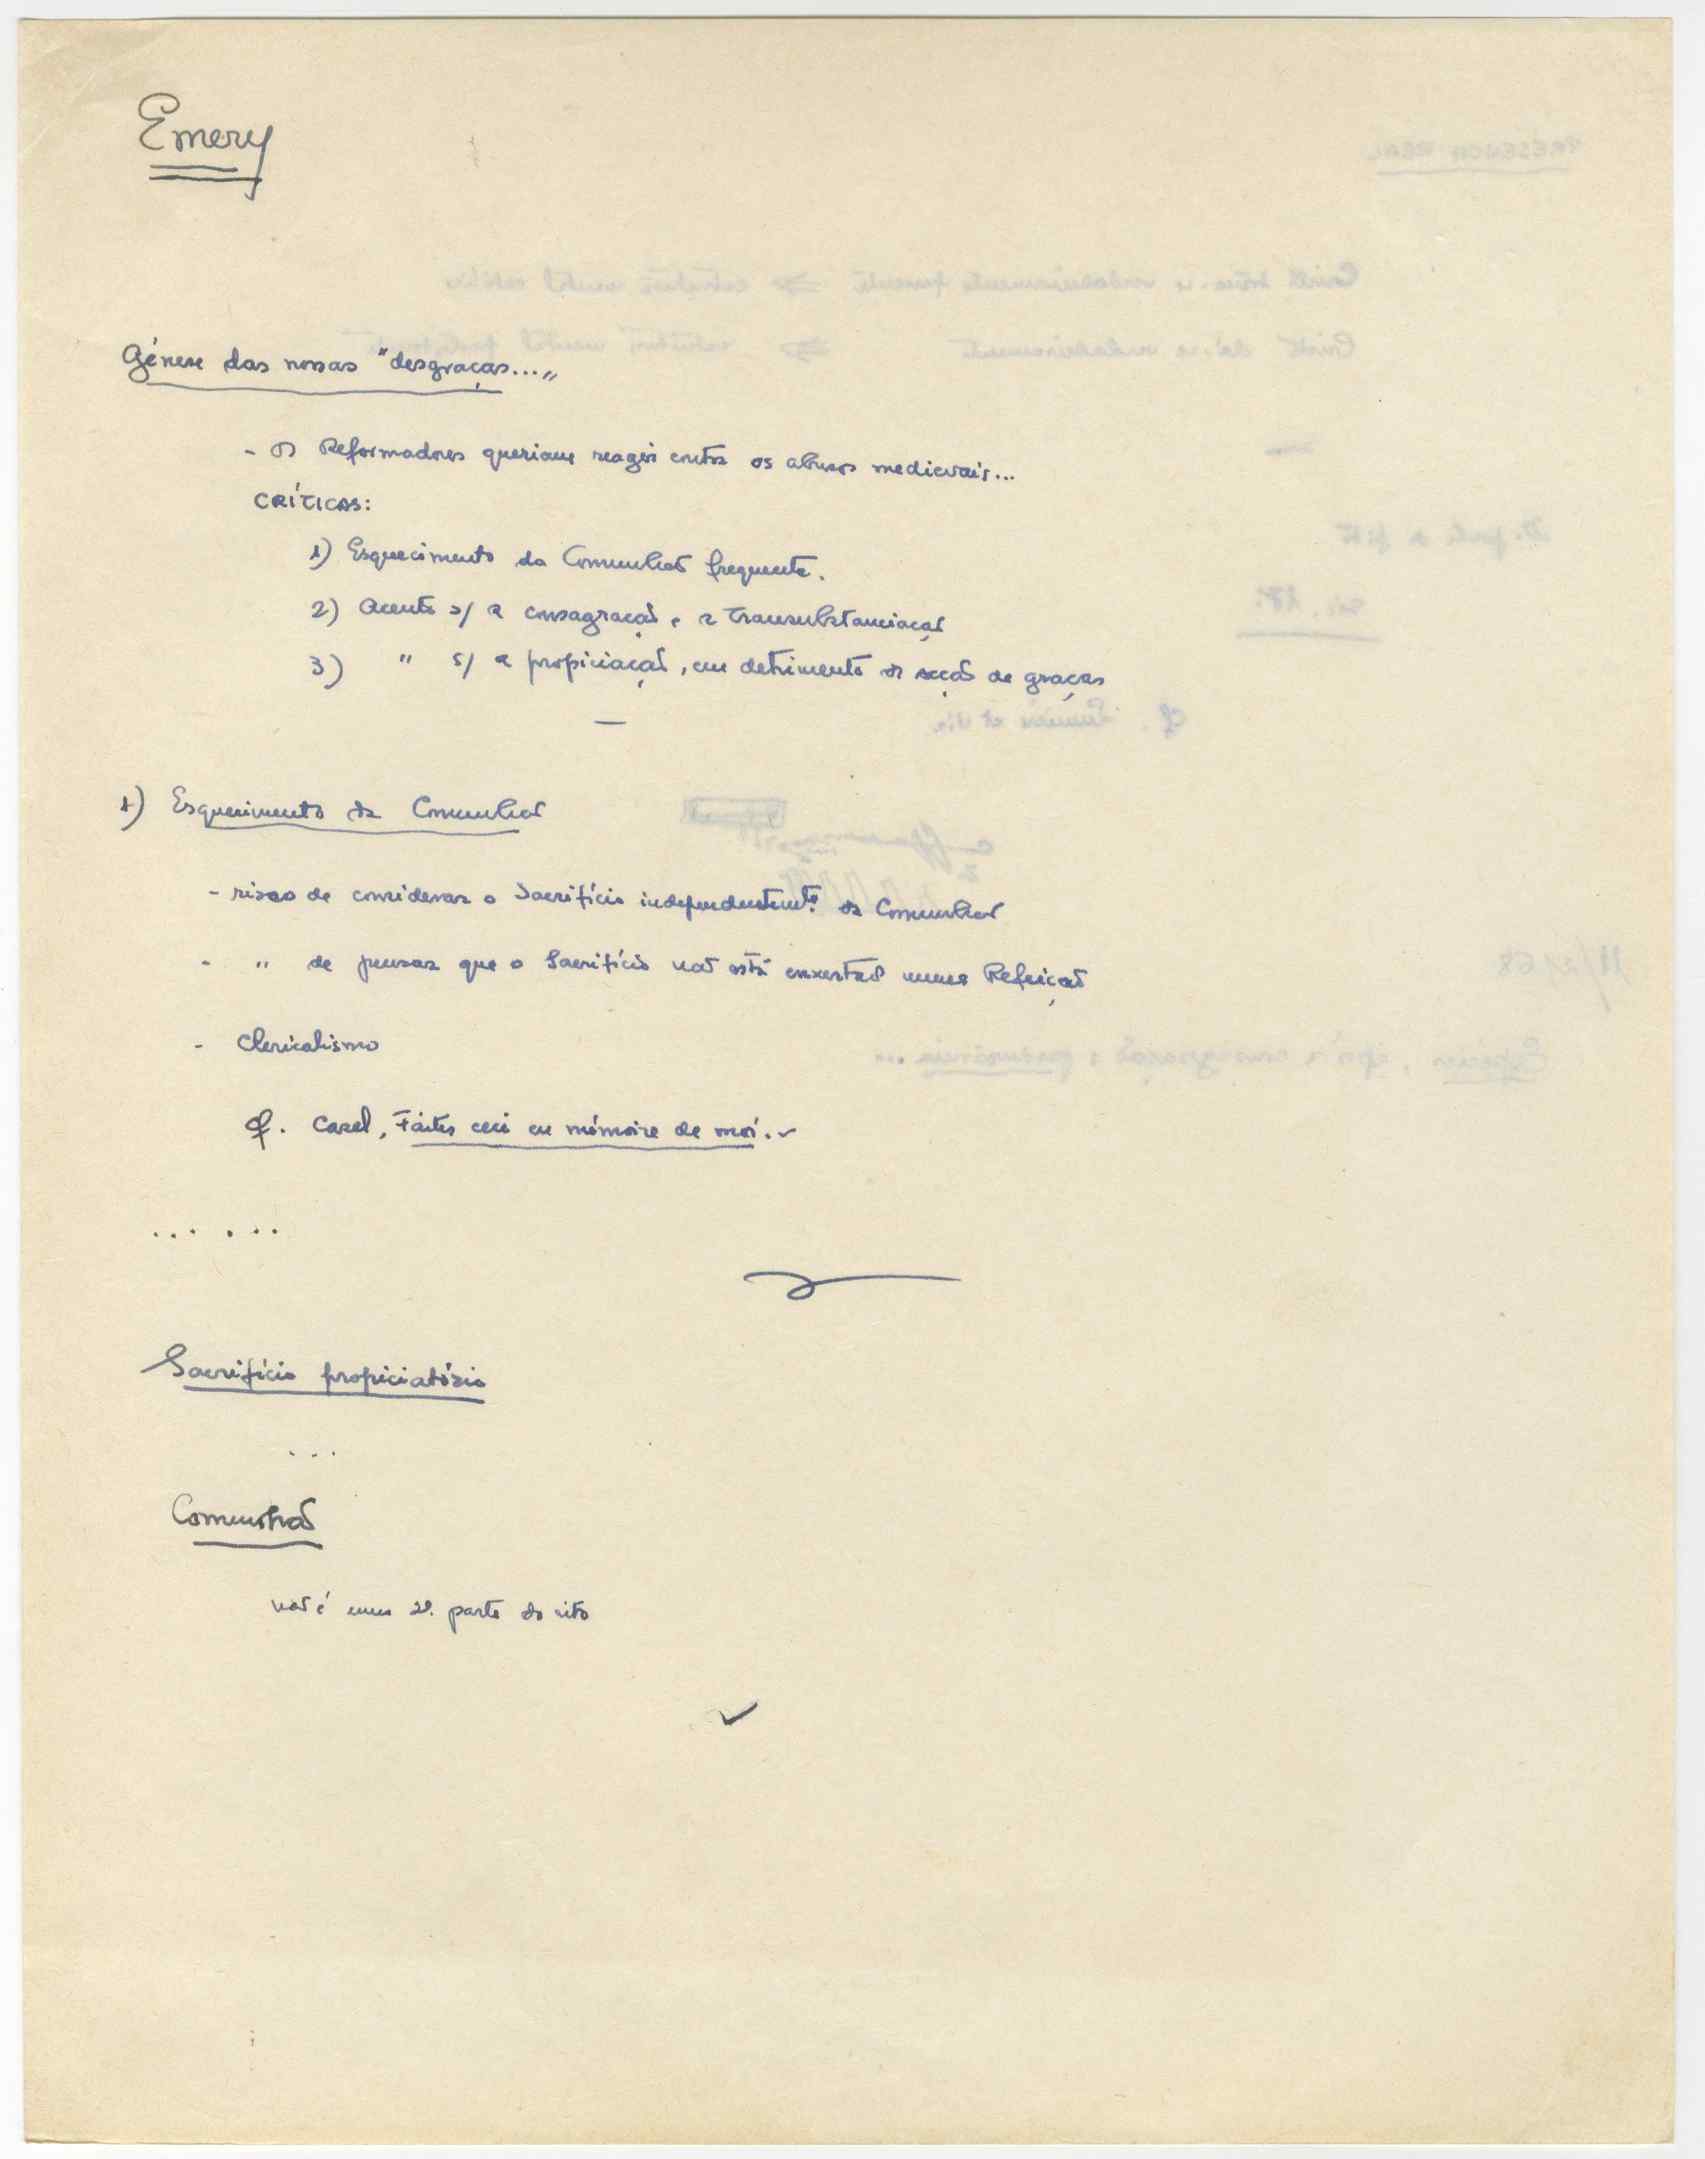 Emery
Génese das nossas "desgraças..."
- Os Reformadores queriam reagir contra os abusos medievais...
CRÍTICAS:
1) Esquecimento da Comunhão frequente.
2) Acento s/ a consagração e a Transubstanciação
3) " s/ a propiciação, em detrimento da acção de graças
—
1) Esquecimento da Comunhão
- risco de considerar o Sacrifício independentemte. da Comunhão
- " de pensar que o Sacrifício não está enxertado numa Refeição
- Clericalismo
Cf. Casel, Faites ceci en mémoire de moi.
... ...
Sacrifício propiciatório
...
Comunhão
não é uma 2ª. parte do rito